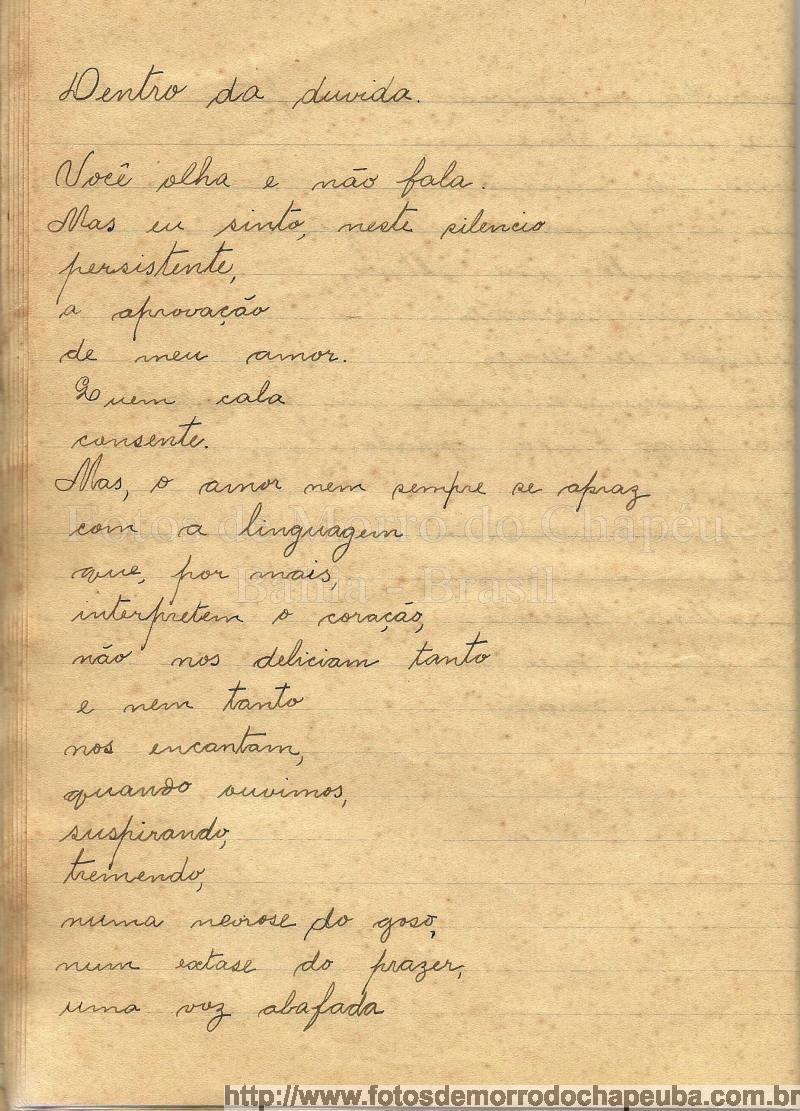 Dentro da duvida.
Você olha e não fala.
Mas eu sinto, neste silencio
persistente,
a aprovação
de meu amor.
Quem cala
consente.
Mas, o amor nem sempre se apraz
com a linguagem
que, por mais,
interpretem o coração,
não nos deliciam tanto
e nem tanto
nos encantam,
quando ouvimos,
suspirando,
tremendo,
numa nevrose do goso,
num extase do prazer,
uma voz abafada
Fotos de Morro do Chapéu
Bahia - Brasil
http://www.fotosdemorrodochapeuba.com.br